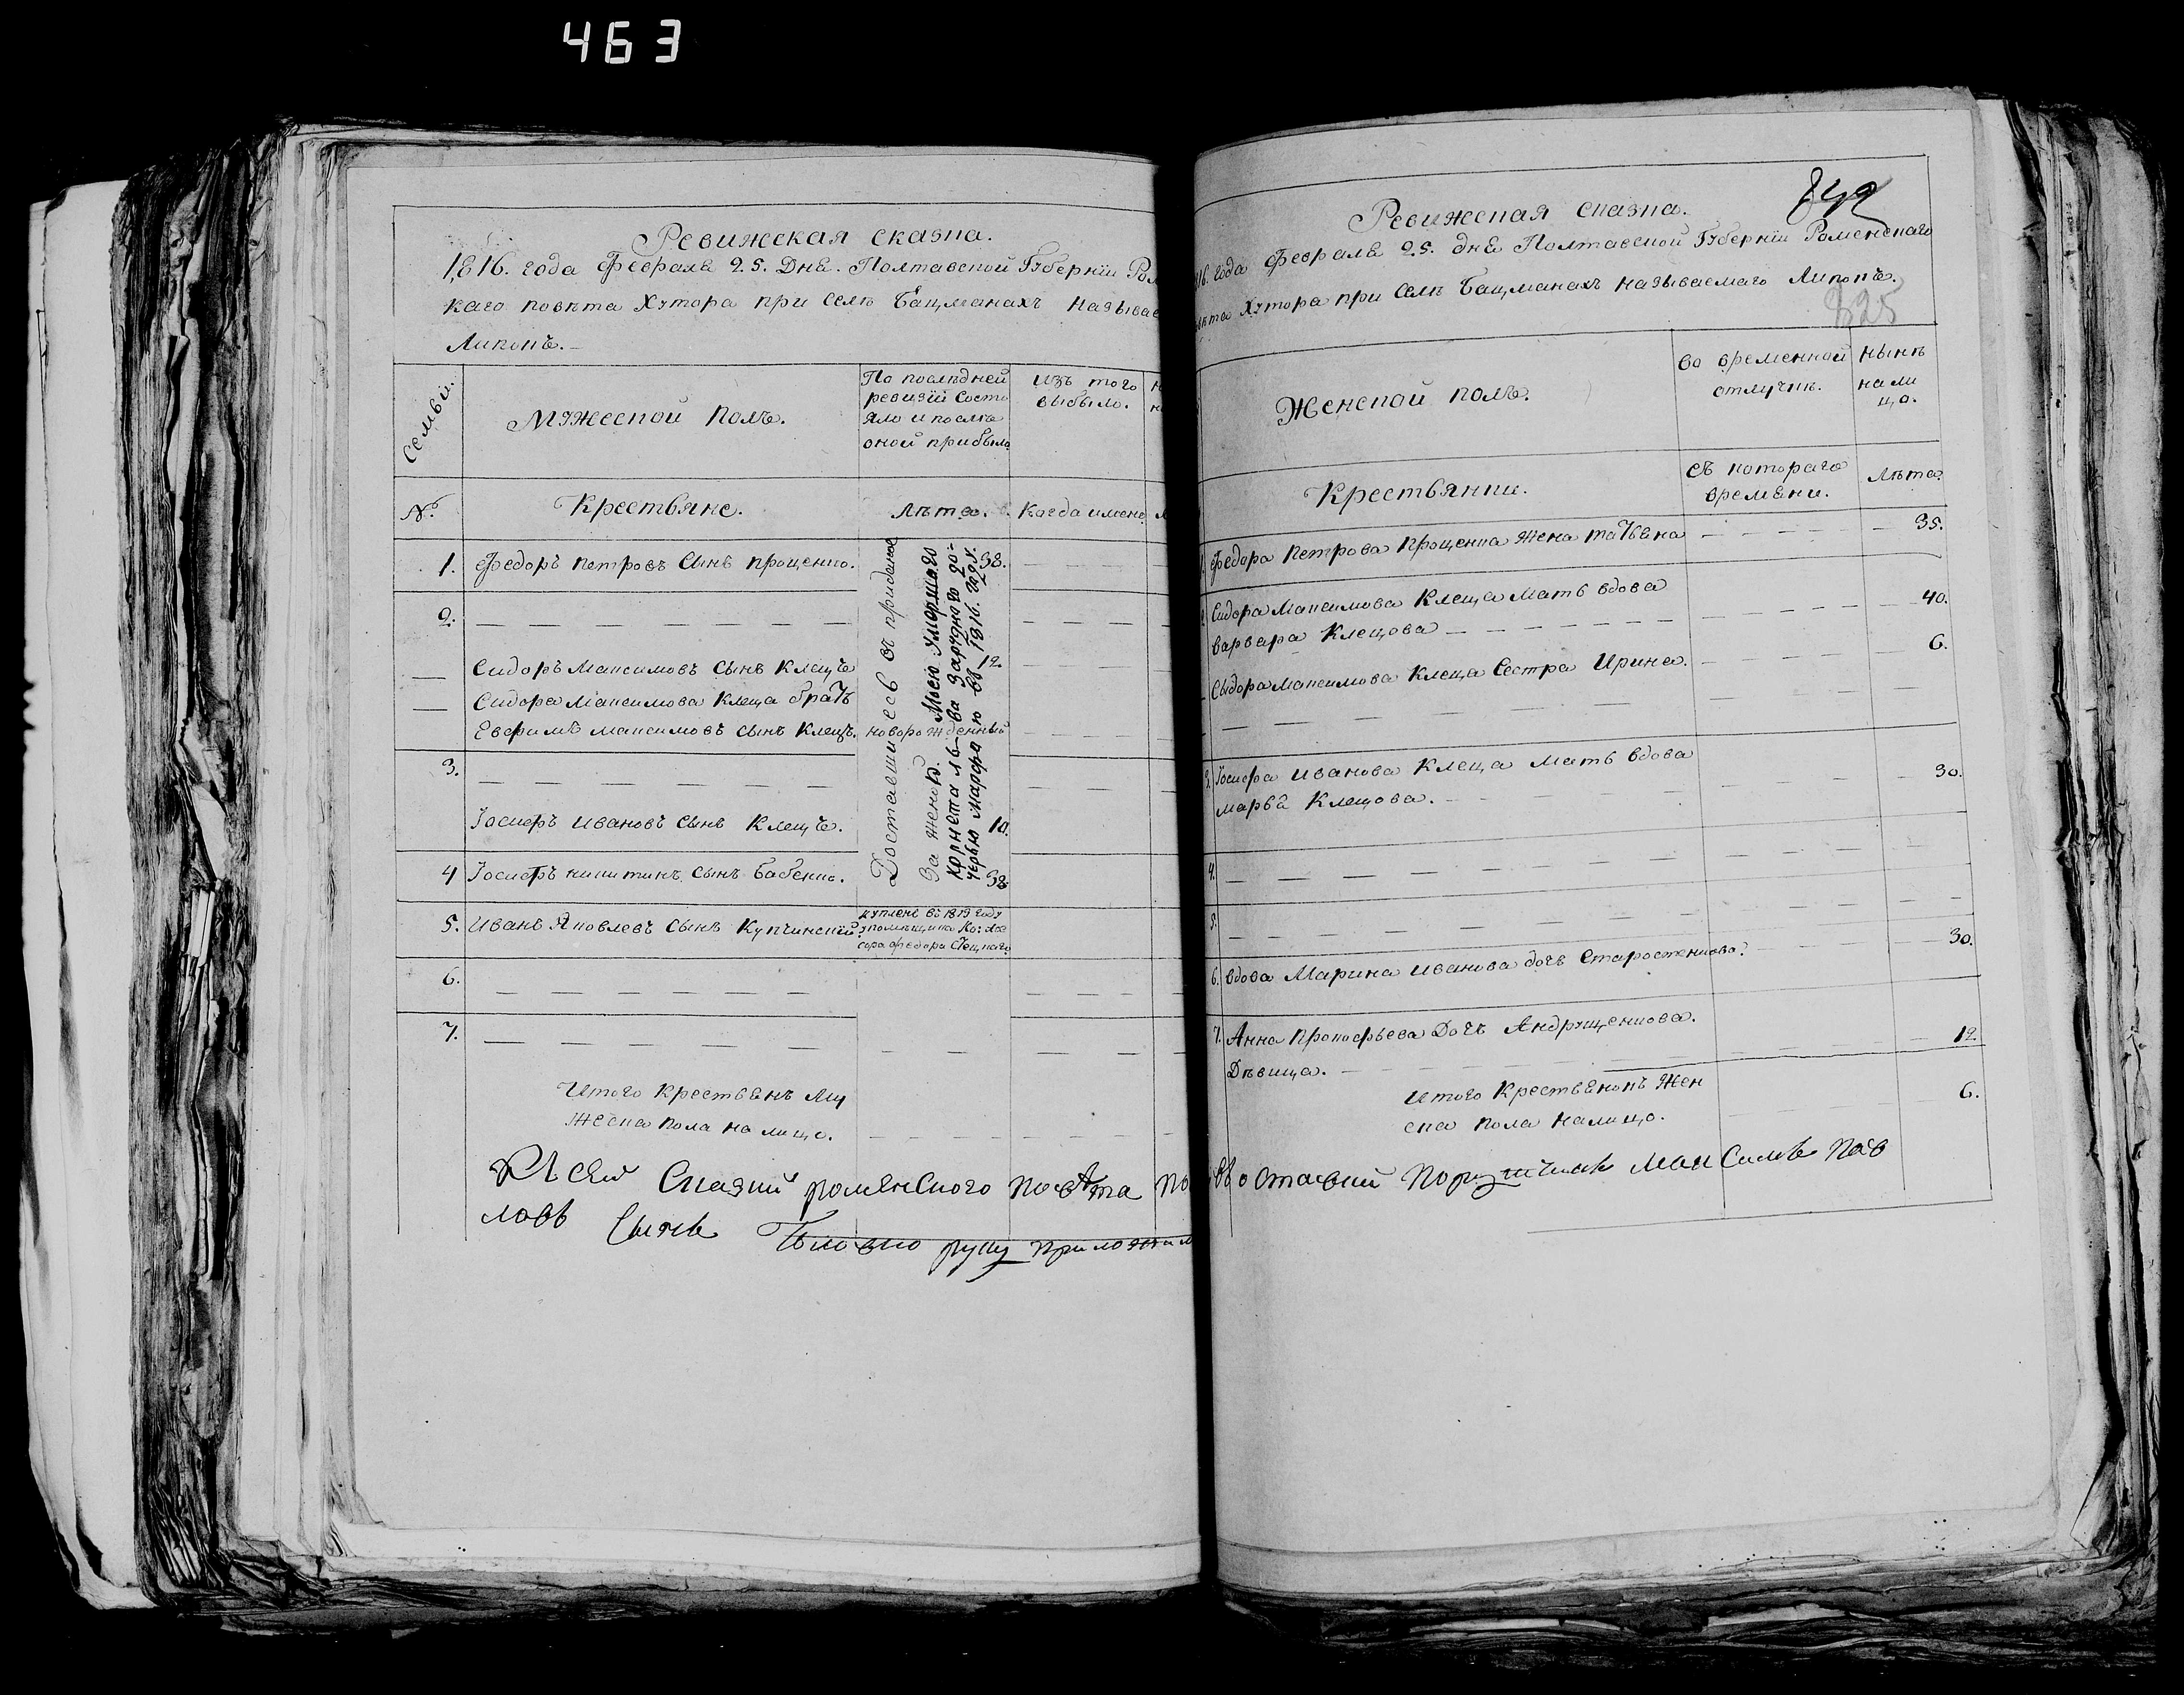 463
Ревижская сказка.
1816. года Февраля 25. Дня. Полтавской Губерніи Ром
каго повѣта Хутора при Селѣ Бацманахъ Называе
Липокъ.
Семьи.
Мужеской полъ.
По послѣдней
ревизіи состо
яло и послѣ
оной прибыло
изъ того
выбыло.
№.
Крестьяне.
Лѣта.
Когда имено
1. Федоръ Петровъ Сынъ Проценко. 38.
2.
Сидоръ Максимовъ Сынъ Клещъ 12.
Сидора Максимова Клеща братъ
Евфимъ Максимовъ сынъ Клещъ. новорожденный
3.
Іосифъ Ивановъ сынъ Клещъ. 10.
4 Іосифъ Никитинъ Сынъ Бабенко. 38
5. Иванъ Яковлевъ Сынъ Купчинскій.
куплен въ году
помѣщика
Федора
6.
7.
Доставшиесь въ приданое
За женою Моею Умершаго
Корнета Ль-ва Заруднаго до-
черью Марфою въ 1816. году.
Итого Крестьянъ Му
жеска пола на лицо.
Къ сей Сказки роменского повѣта
ловъ Сынъ руку приложил
842
Ревижская сказка.
816. года Февраля 25. дня Полтавской Губерніи Роменскаго
вѣта Хутора при Селѣ Бацманахъ называемаго Липокъ.
825
Женской полъ.
во временной
отлучкѣ.
нынѣ
на ли
цо.
Крестьянки.
съ котораго
времени.
Лѣта.
1. Федора Петрова Проценка жена татьяна 35.
2 Сидора Максимова Клеща Мать вдова
варвара Клещова 40.
Сыдора Максимова Клеща Сестра Ирина. 6.
3. Іосифа Иванова Клеща Мать вдова
марья Клещова. 30.
4.
5.
6. вдова Марина Иванова дочь Старостенкова. 30.
7. Анна Прокофьева Дочь Андрущенкова.
Дѣвица. 12.
Итого Крестьянокъ Жен
ска пола налицо. 6.
оставній Поручикъ Максимъ Пав